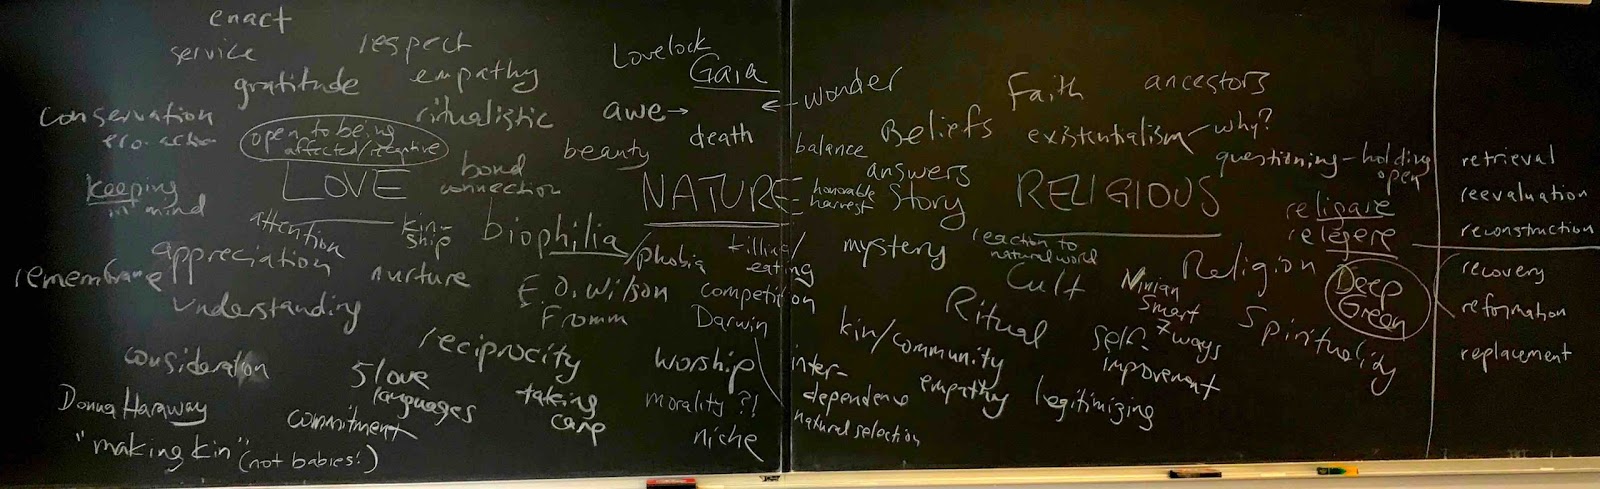 enact
service
respect
gratitude
empathy
conservation
eco-action
ritualistic
open to being
affected/receptive
LOVE
bond
connection
keeping
in mind
attention
kin-
ship
appreciation
nurture
remembrance
understanding
consideration
5 love
languages
reciprocity
taking
care
commitment
Donna Haraway
"making kin" (not babies!)
Lovelock
Gaia
awe→
←wonder
death
beauty
balance
NATURE
honorable
harvest
biophilia/phobia
killing/
eating
E.O. Wilson
Fromm
competition
Darwin
worship
morality?!
niche
inter-
dependence
natural selection
Faith
ancestors
Beliefs
existentialism
why?
answers
questioning - holding
open
Story
RELIGIOUS
religare
relegere
mystery
reaction to
natural world
Cult
Religion
Ninian
Smart
7 ways
Deep
Green
Ritual
Spirituality
kin/community
self-
improvement
empathy
legitimizing
retrieval
reevaluation
reconstruction
recovery
reformation
replacement